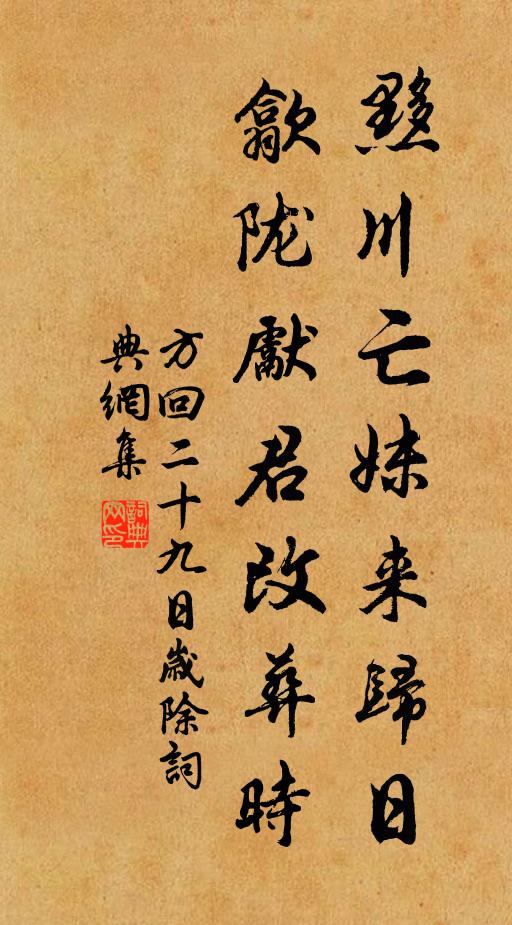 黟川亡妹来歸日
歙陇獻君改葬時
方回二十九日歲除詞
典網集
詞典網印